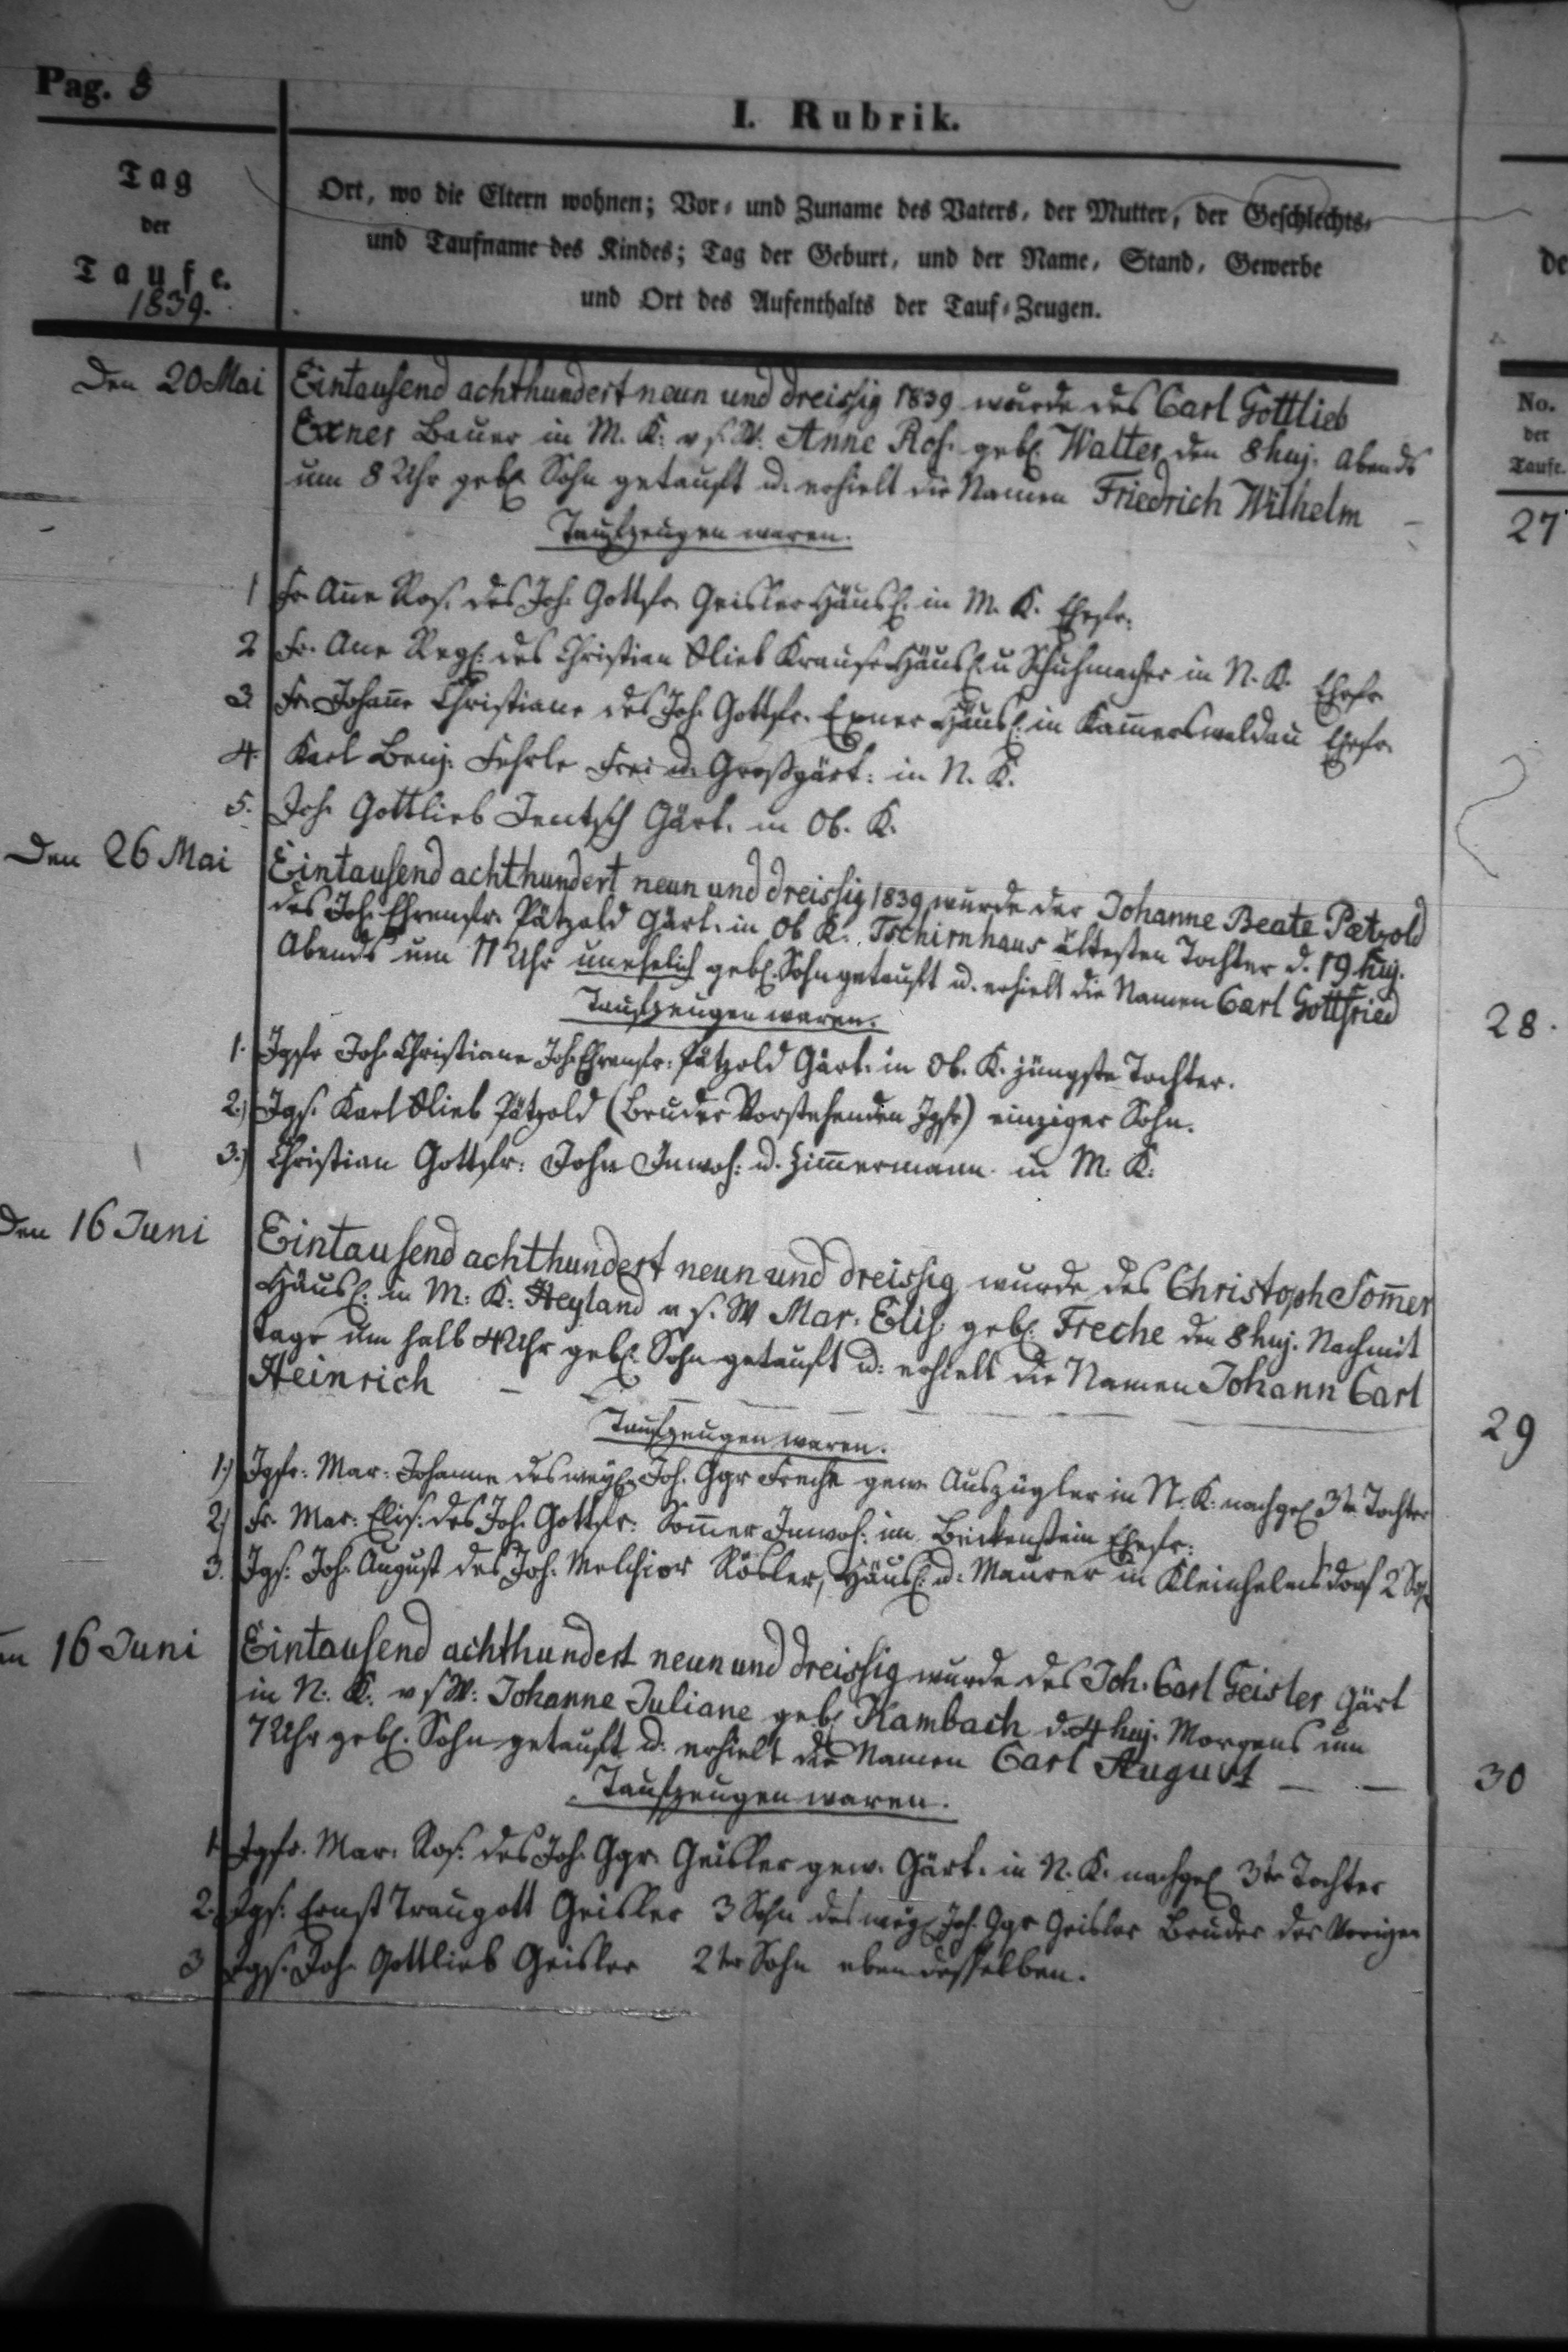 Pag. 8
I. Rubrik.
Tag
der
Taufe.
1839.
Ort, wo die Eltern wohnen; Vor- und Zuname des Vaters, der Mutter, der Geschlechts-
und Taufname des Kindes; Tag der Geburt, und der Name, Stand, Gewerbe
und Ort des Aufenthalts der Tauf-Zeugen.
No.
der
Taufe.
Den 20 Mai
Eintausend achthundert neun und dreissig 1839 wurde des Carl Gottlieb
Exner Bauer in M. K. v s. W. Anne Ros. geb. Walter den 8 huj. Abends
um 8 Uhr geb. Sohn getauft u. erhielt die Namen Friedrich Wilhelm –
27
Taufzeugen waren.
1 Fr. Ane Ros. des Joh. Gottfr. Geisler Häusl. in M. K. Ehefr.
2 Fr. Ane Reg. des Christian Glieb Krause Häusl. u Schuhmacher in N. K. Ehefr
3 Fr. Johane Christiane des Joh. Gottfr. Exner Häusl. in Kam̅erswaldau Ehefr.
4. Karl Benj. Fehrle Frei u. Großgärt. in N. K.
5. Joh. Gottlieb Jentsch Gärt. in Ob. K.
Den 26 Mai
Eintausend achthundert neun und dreissig 1839 wurde der Johanne Beate Pætzold
des Joh. Ehrenfr. Pätzold Gärt. in Ob K. Tschirnhaus ältesten Tochter d. 19 huj.
Abends um 11 Uhr unehelich geb. Sohn getauft u. erhielt die Namen Carl Gottfried
28.
Taufzeugen waren.
1. Jgfr Joh. Christiane Joh. Ehrenfr. Pätzold Gärt. in Ob. K. jüngste Tochter.
2.) Jgs. Karl Glieb Pätzold (Bruder Vorstehenden Jgfr) einziger Sohn.
3.) Christian Gottfr. John Inwoh. u. Zim̅ermann in M. K.
Den 16 Juni
Eintausend achthundert neun und dreissig wurde des Christoph Som̅er
Häusl. in M. K. Heyland v s. W Mar. Elis. geb. Freche den 8 huj. Nachmit
tags um halb 4 Uhr geb. Sohn getauft u. erhielt die Namen Johann Carl
Heinrich – – –
29
Taufzeugen waren.
1.) Jgfr. Mar. Johanne des weyl. Joh. Ggr Freche gew. Auszügler in N. K. nachgel 3te Tochter
2.) Fr. Mar. Elis. des Joh. Gottfr. Som̅er Inwoh. im Ehefr.
3. Jgs. Joh. August des Joh. Melchior Rösler, Häusl. u. Maurer in Kleinhelmsdorf 2 Soh
16 Juni
Eintausend achthundert neun und dreissig wurde des Joh. Carl Geisler Gärt
in N. K. v s W. Johanne Juliane geb. Kambach d. 4 huj. Morgens um
7 Uhr geb. Sohn getauft u. erhielt die Namen Carl August – –
30
Taufzeugen waren.
1. Jgfr. Mar. Ros. des Joh. Ggr. Geisler gew. Gärt. in N. K. nachgel 3te Tochter
2. Jgs. Ernst Traugott Geisler 3 Sohn des weyl. Joh. Ggr Geisler Bruder der Vorigen
3 Jgs. Joh. Gottlieb Geisler 2ter Sohn eben desselben.